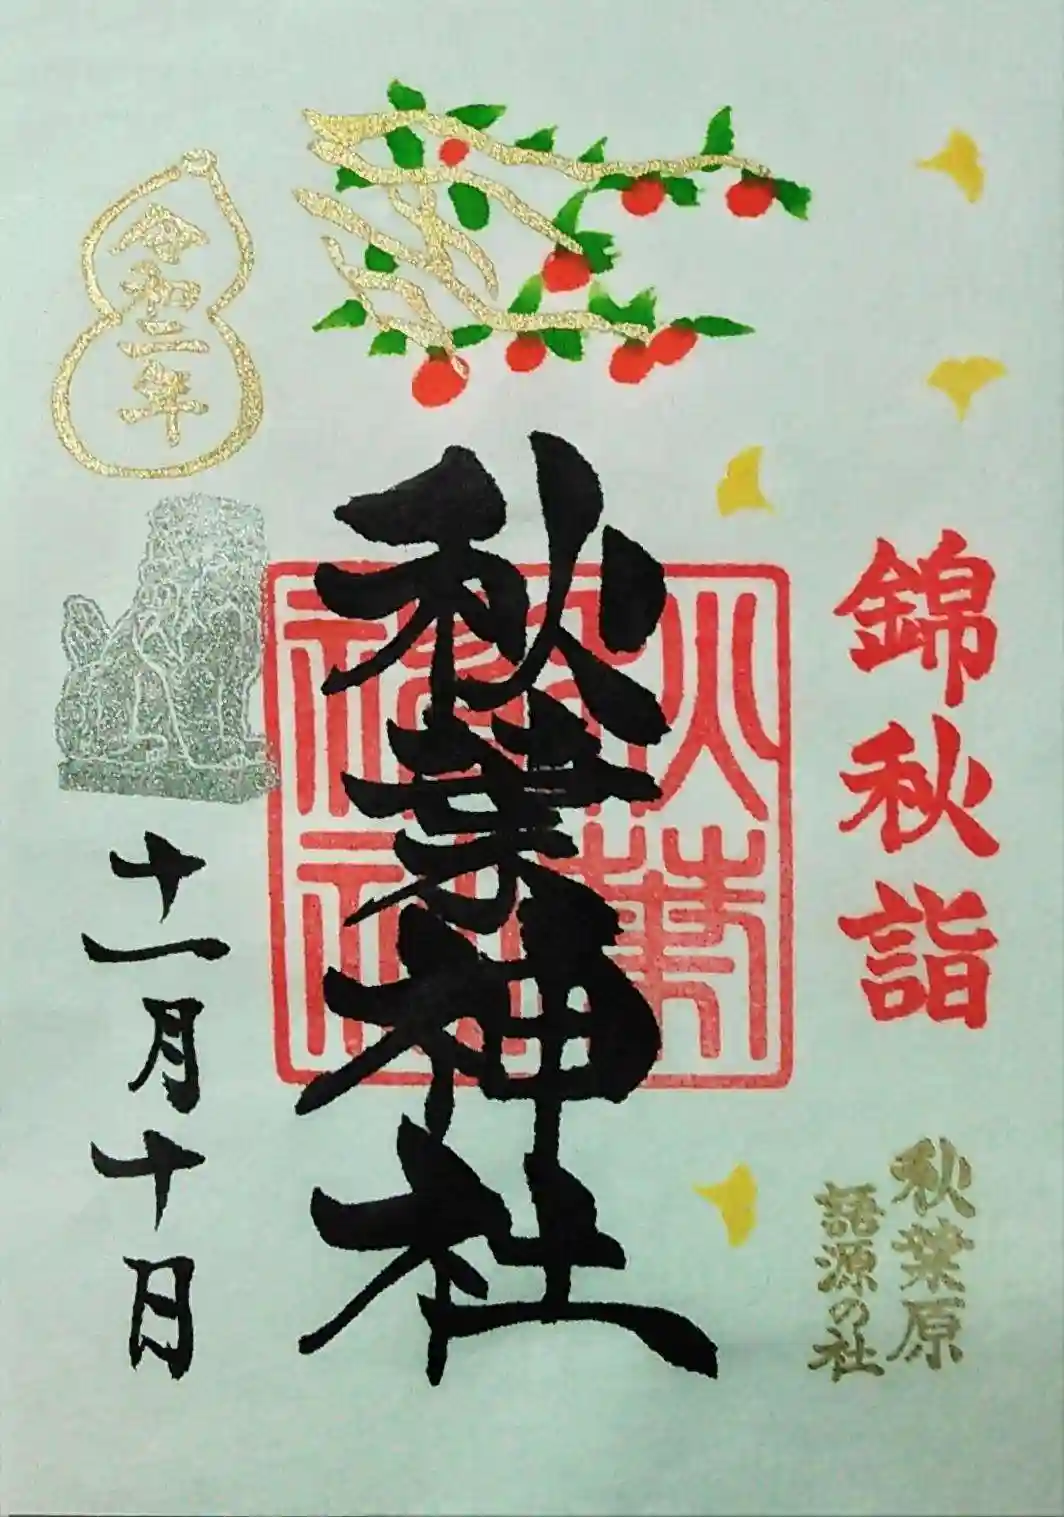 錦秋詣
秋葉原
語源の社
秋葉神社
秋葉
神社
令和二年
十一月十日